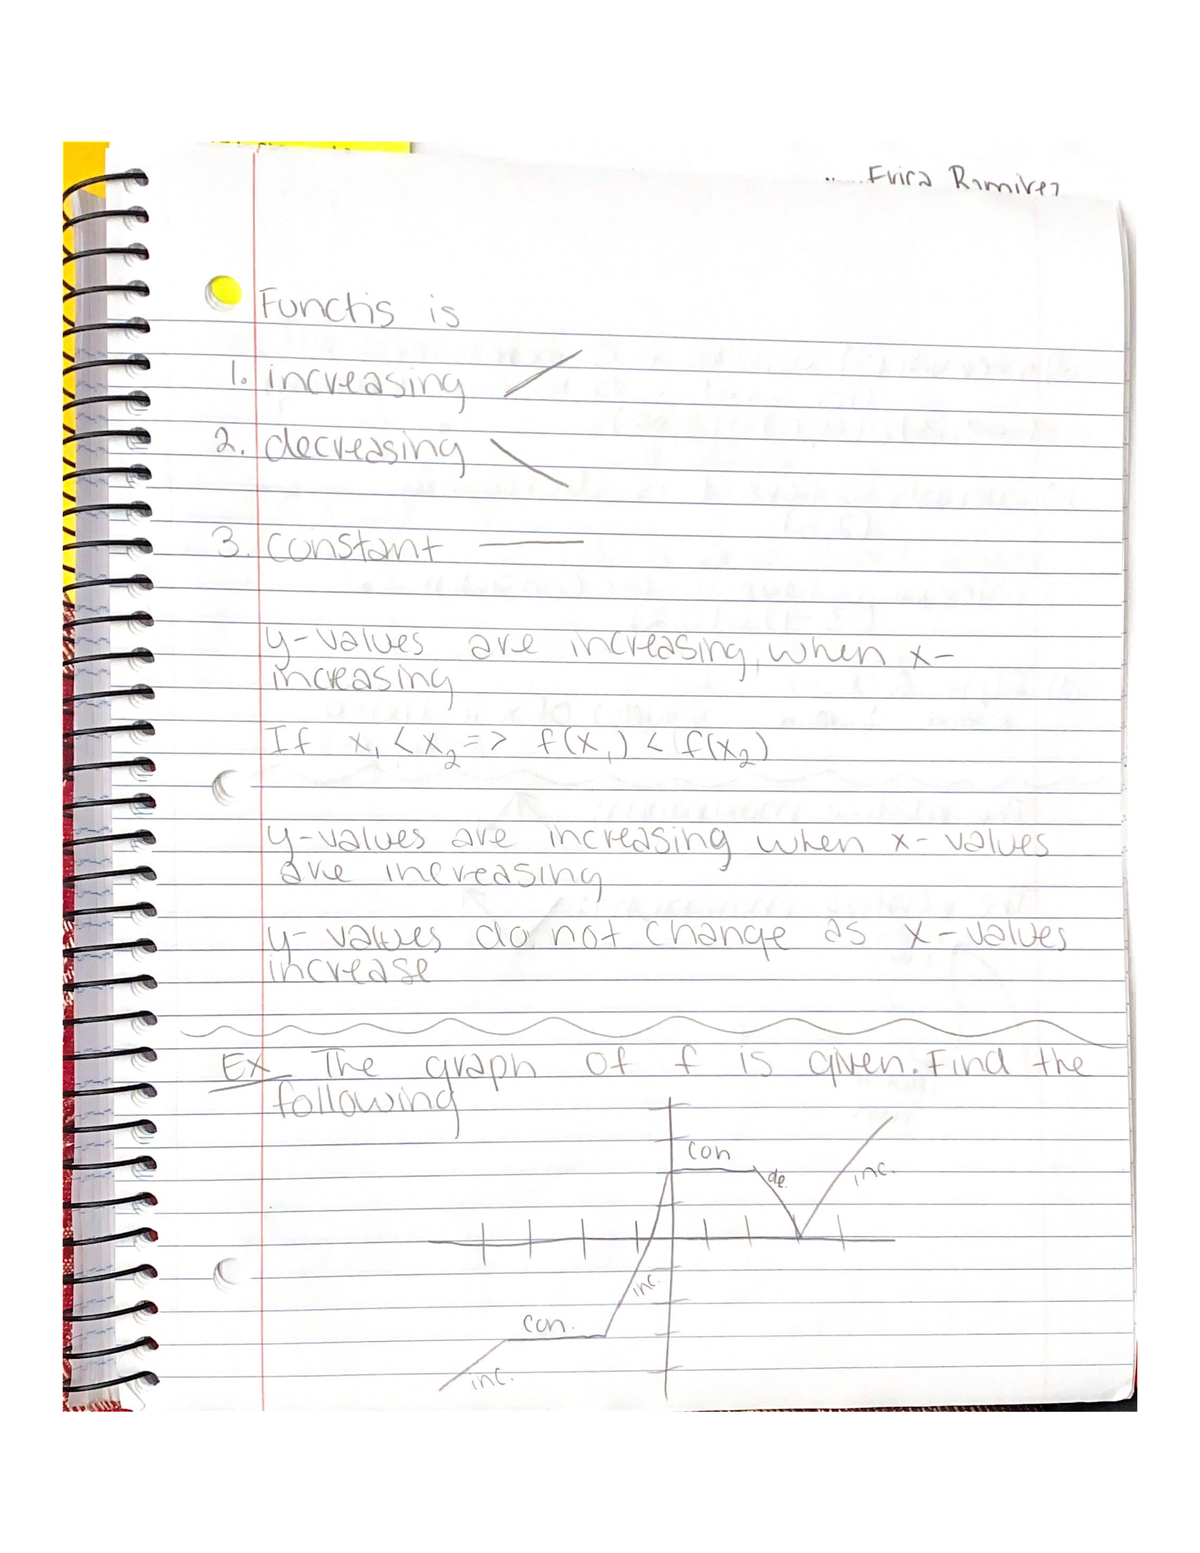 Erica Ramirez
Functis is
1. increasing
2. decreasing
3. constant
y-values are increasing, when x-
increasing
If x₁ < x₂ => f(x₁) < f(x₂)
y-values are increasing when x-values
are increasing
y-values do not change as x-values
increase
EX The graph of f is given. Find the
following
con
de.
inc.
inc.
con.
inc.